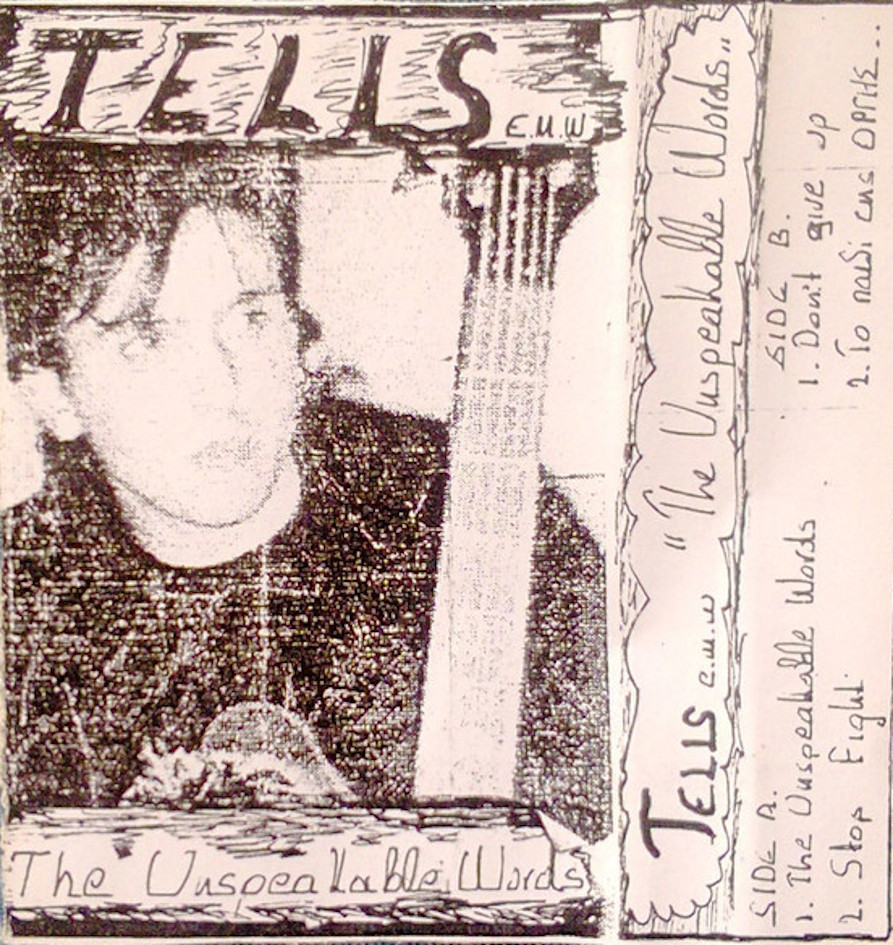 TELLS
E.M.W
The Unspeakable Words
TELLS E.M.W "The Unspeakable Words"
SIDE A.
1. The Unspeakable Words
2. Stop Fight
SIDE B.
1. Don't give up
2. Το παιδί της ΟΡΓΗΣ...